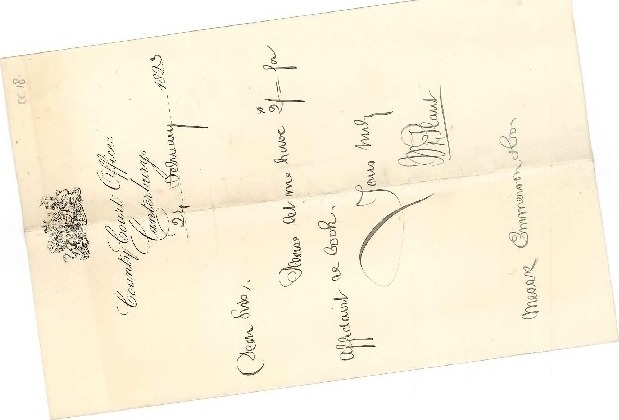 County Court Offices,
Canterbury.
24 February 1893
Dear Sirs,
Please let me have 2/= for
Affidavit re Cook.
Yours truly
Messrs Emmerson & Co